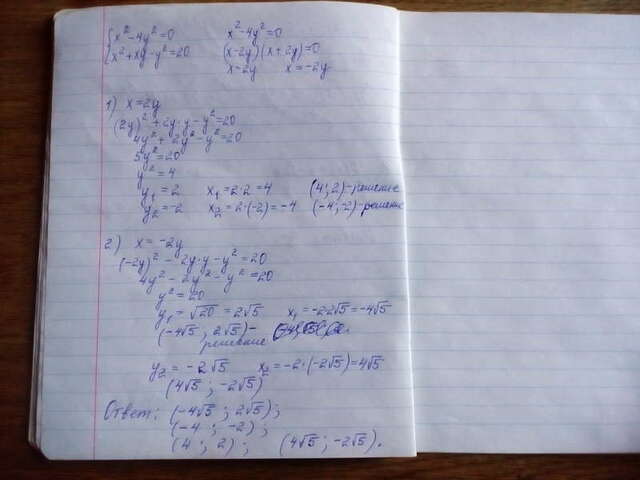 {x²-4y²=0    x²-4y²=0
{x²+xy-y²=20    (x-2y)(x+2y)=0
x=2y    x=-2y
1) x=2y
(2y)²+2y·y-y²=20
4y²+2y²-y²=20
5y²=20
y²=4
y₁=2    x₁=2·2=4    (4;2)-решение
y₂=-2    x₂=2·(-2)=-4    (-4;-2)-решение
2) x=-2y
(-2y)²-2y·y-y²=20
4y²-2y²-y²=20
y²=20
y₁=√20=2√5    x₁=-2·2√5=-4√5
(-4√5; 2√5)-
решение
y₂=-2√5    x₂=-2·(-2√5)=4√5
(4√5; -2√5)
Ответ: (-4√5; 2√5);
(-4; -2);
(4; 2);    (4√5; -2√5).